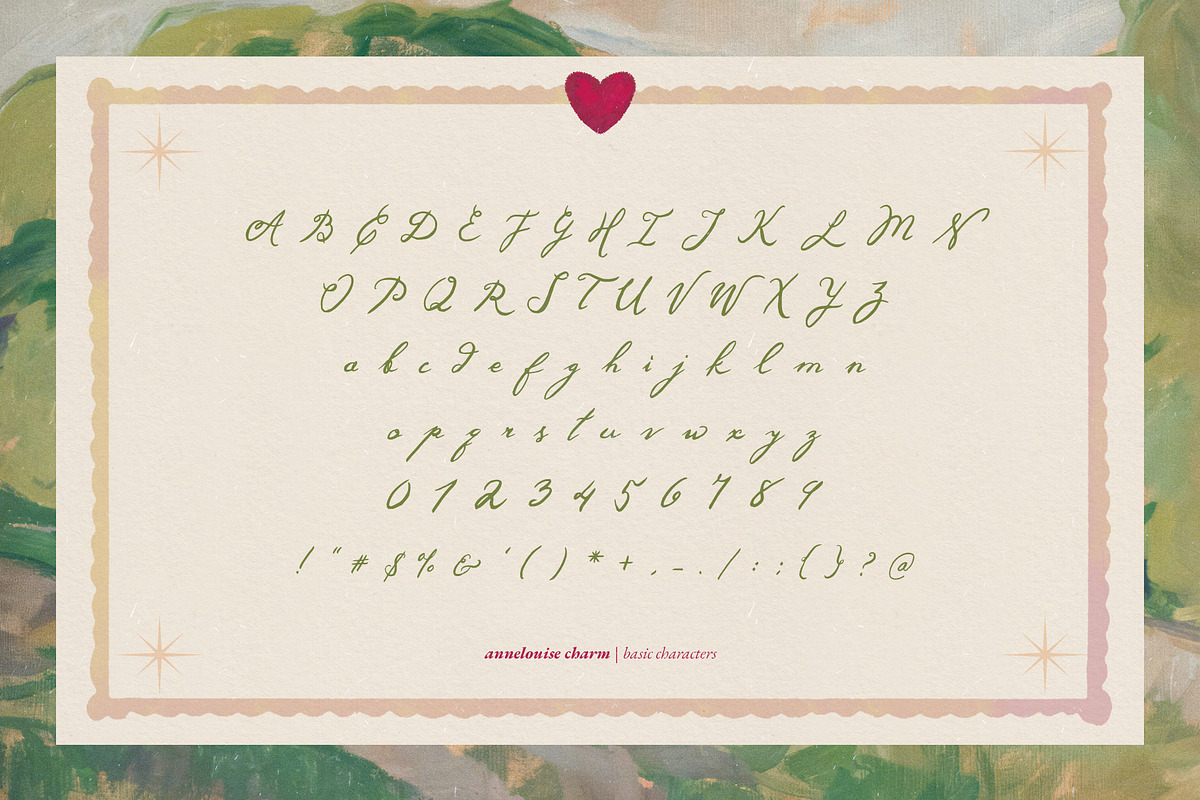 A B C D E F G H I J K L M N
O P Q R S T U V W X Y Z
a b c d e f g h i j k l m n
o p q r s t u v w x y z
0 1 2 3 4 5 6 7 8 9
! " # $ % & ' ( ) * + , - . / : ; { } ? @
annelouise charm | basic characters